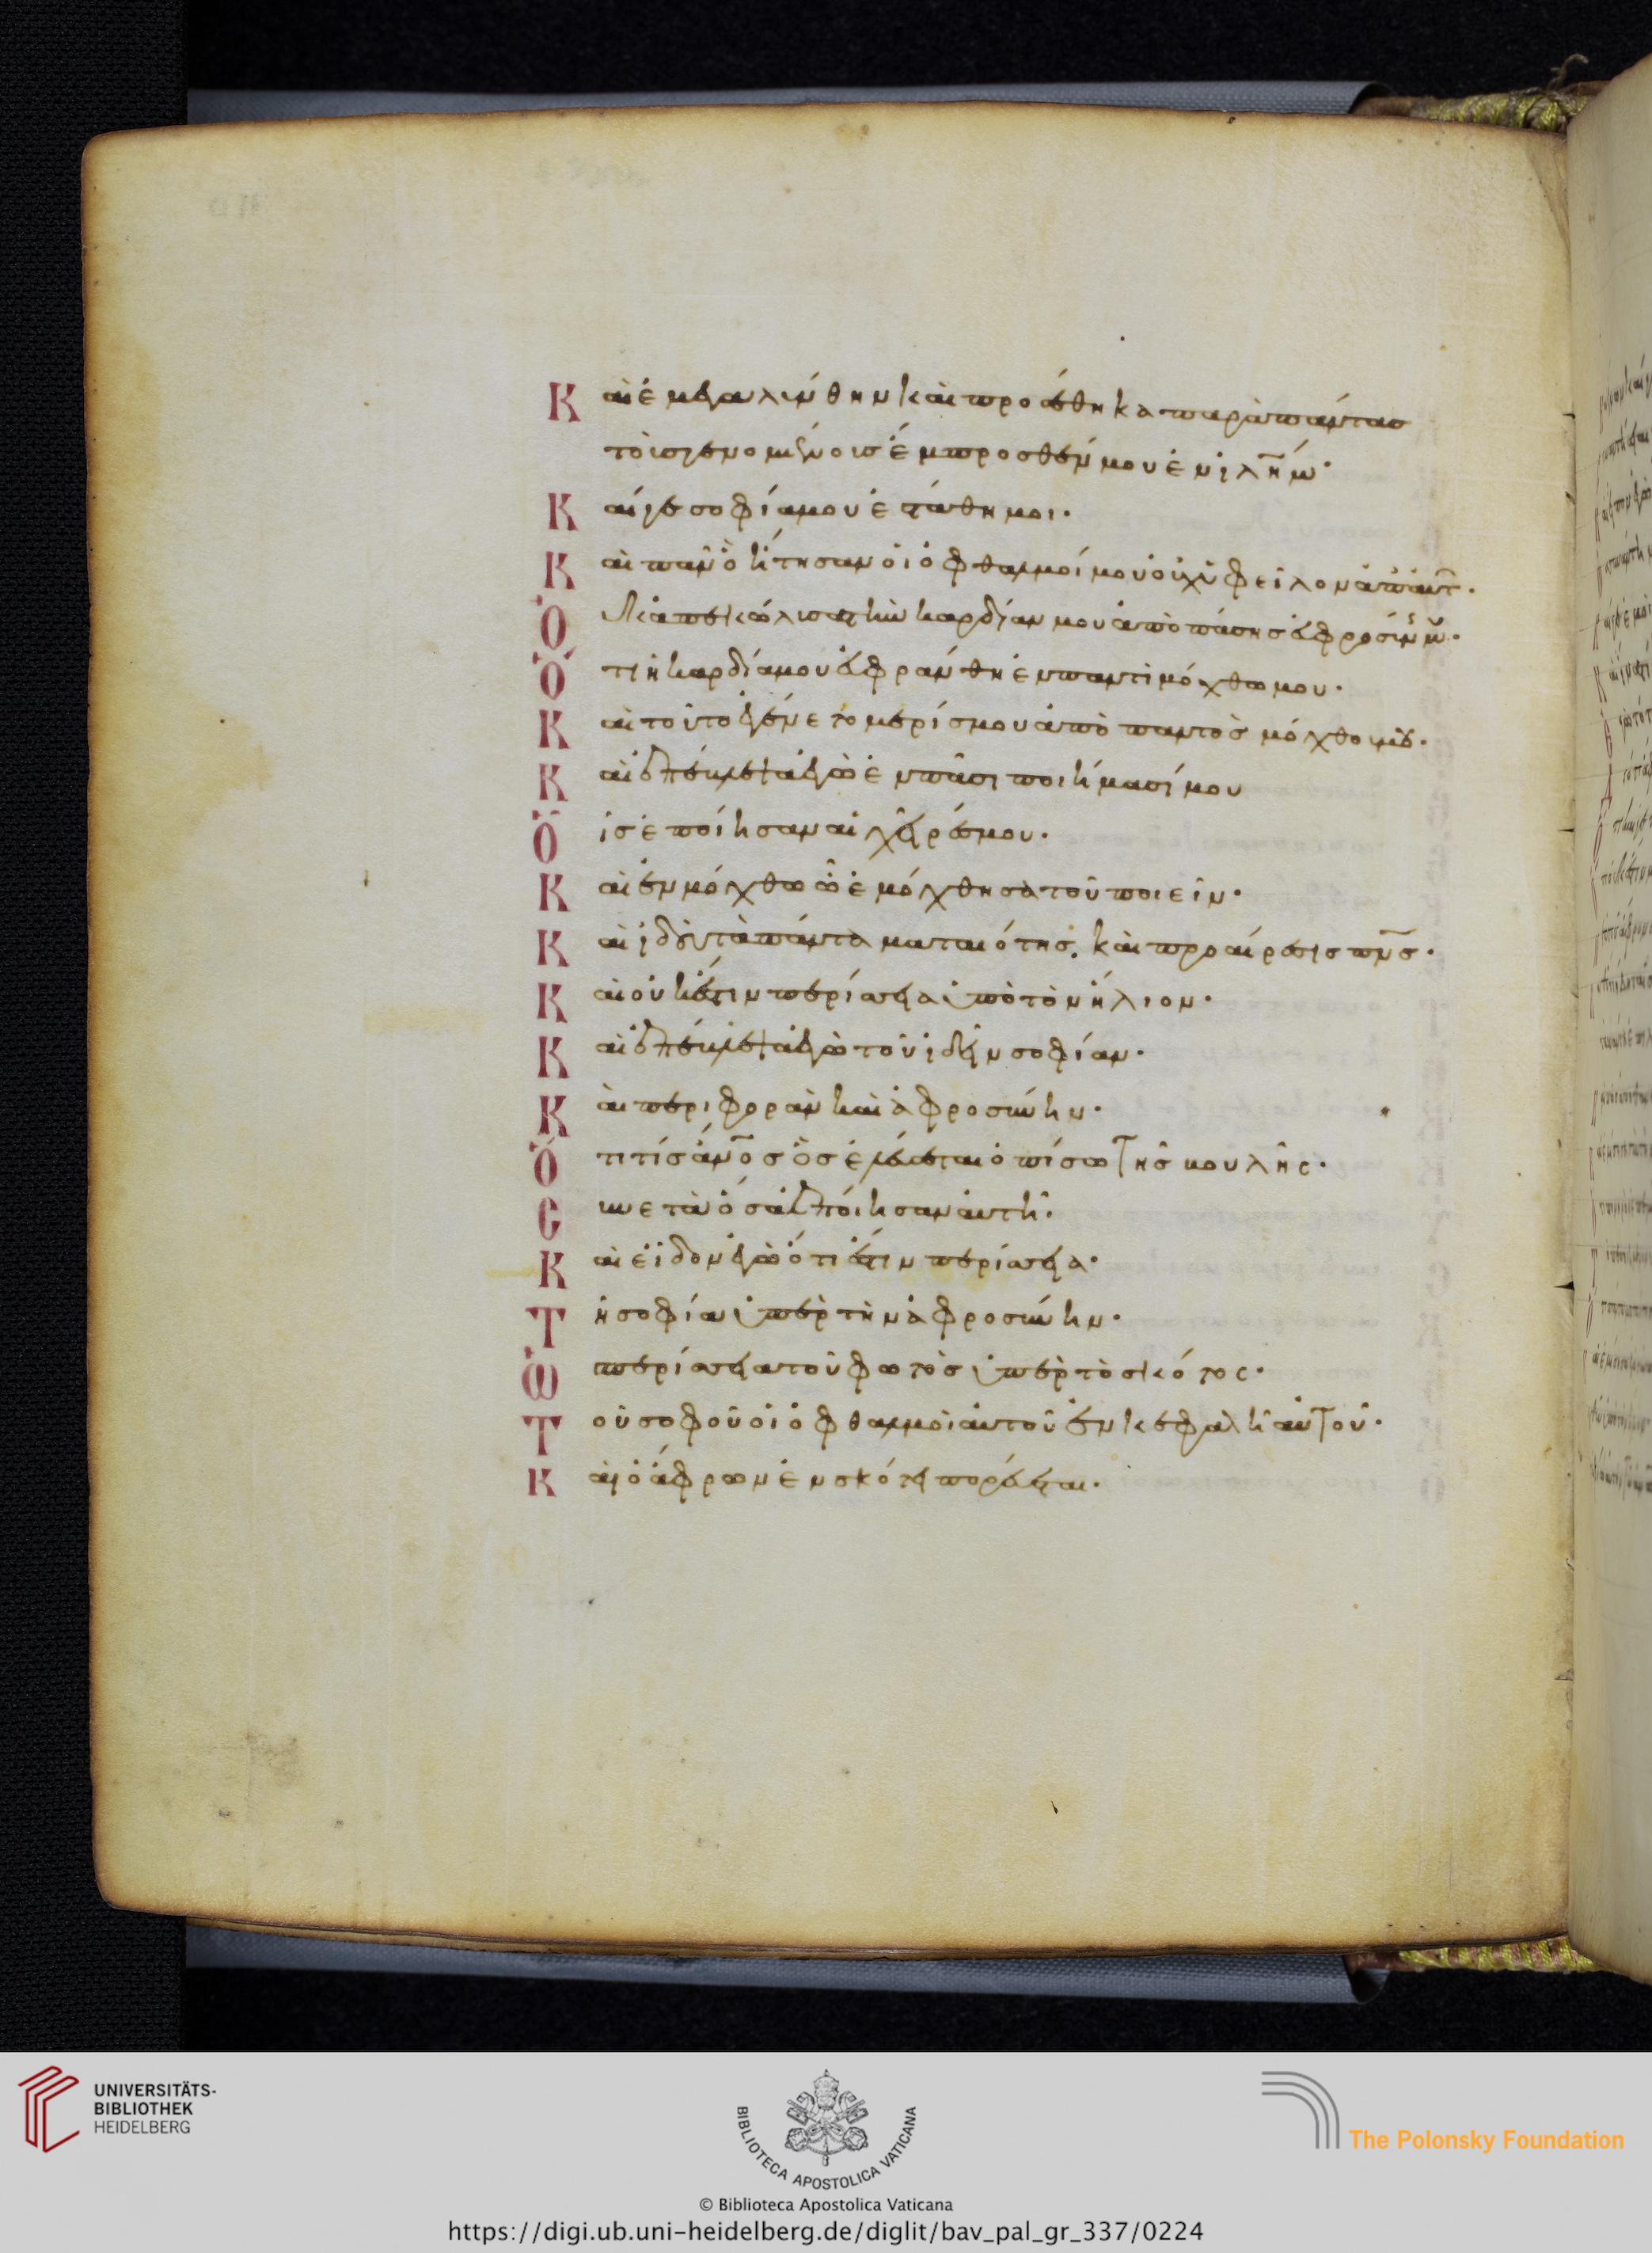 Καὶ ἐμεγαλύνθην καὶ προσέθηκα παρὰ πάντας
τοῖς γενομένοις ἔμπροσθέν μου ἐν ιλημ·
Καί γε σοφία μου ἐστάθη μοι·
Καὶ πᾶν ὃ ἤτησαν οἱ ὀφθαλμοί μου οὐχ ὑφεῖλον ἀπ αυτ·
Ὀκ ἀπεκώλυσα τὴν καρδίαν μου ἀπὸ πάσης εὐφροσύνης·
Ὅτι ἡ καρδία μου εὐφράνθη ἐν παντὶ μόχθω μου·
Καὶ τοῦτο ἐγένετο μερίς μου ἀπὸ παντὸς μόχθου μου·
Καὶ ἐπέβλεψα ἐγὼ ἐν πᾶσι ποιήμασί μου
Οἷς ἐποίησαν αἱ χεῖρές μου·
Καὶ ἐν μόχθω ὧ ἐμόχθησα τοῦ ποιεῖν·
Καὶ ἰδοὺ τὰ πάντα ματαιότης. καὶ προαίρεσις πνς·
Καὶ οὐκ ἔστιν περίσσεια ὑπὸ τὸν ἥλιον·
Καὶ ἐπέβλεψα ἐγὼ τοῦ ἰδεῖν σοφίαν·
Καὶ περιφορὰν καὶ ἀφροσύνην·
Ὅτι τίς ἄνος ὃς ἐπελεύσεται ὀπίσω τῆς βουλῆς·
Σὺν τὰ ὅσα ἐποίησαν αὐτῆ·
Καὶ εἶδον ἐγὼ ὅτι ἔστιν περίσσεια·
Τῆ σοφία ὑπὲρ τὴν ἀφροσύνην·
Ὡς περίσσεια τοῦ φωτὸς ὑπὲρ τὸ σκότος·
Τοῦ σοφοῦ οἱ ὀφθαλμοὶ αὐτοῦ ἐν κεφαλῆ αὐτοῦ·
Καὶ ὁ ἄφρων ἐν σκότει πορεύεται·
UNIVERSITÄTS-
BIBLIOTHEK
HEIDELBERG
BIBLIOTECA APOSTOLICA VATICANA
The Polonsky Foundation
© Biblioteca Apostolica Vaticana
https://digi.ub.uni-heidelberg.de/diglit/bav_pal_gr_337/0224